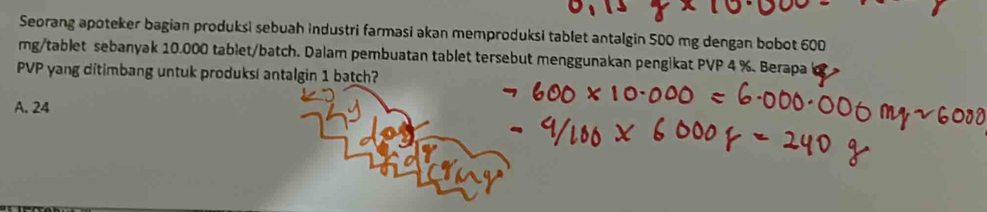 Seorang apoteker bagian produksi sebuah industri farmasi akan memproduksi tablet antalgin 500 mg dengan bobot 600
mg/tablet sebanyak 10.000 tablet/batch. Dalam pembuatan tablet tersebut menggunakan pengikat PVP 4 %. Berapa
PVP yang ditimbang untuk produksi antalgin 1 batch?
- 600 × 10.000 = 6.000.000 mg ~ 6000
A. 24
- 4/100 × 6000 g = 240 g
kg
hg
dag
g
dg
cg
mg